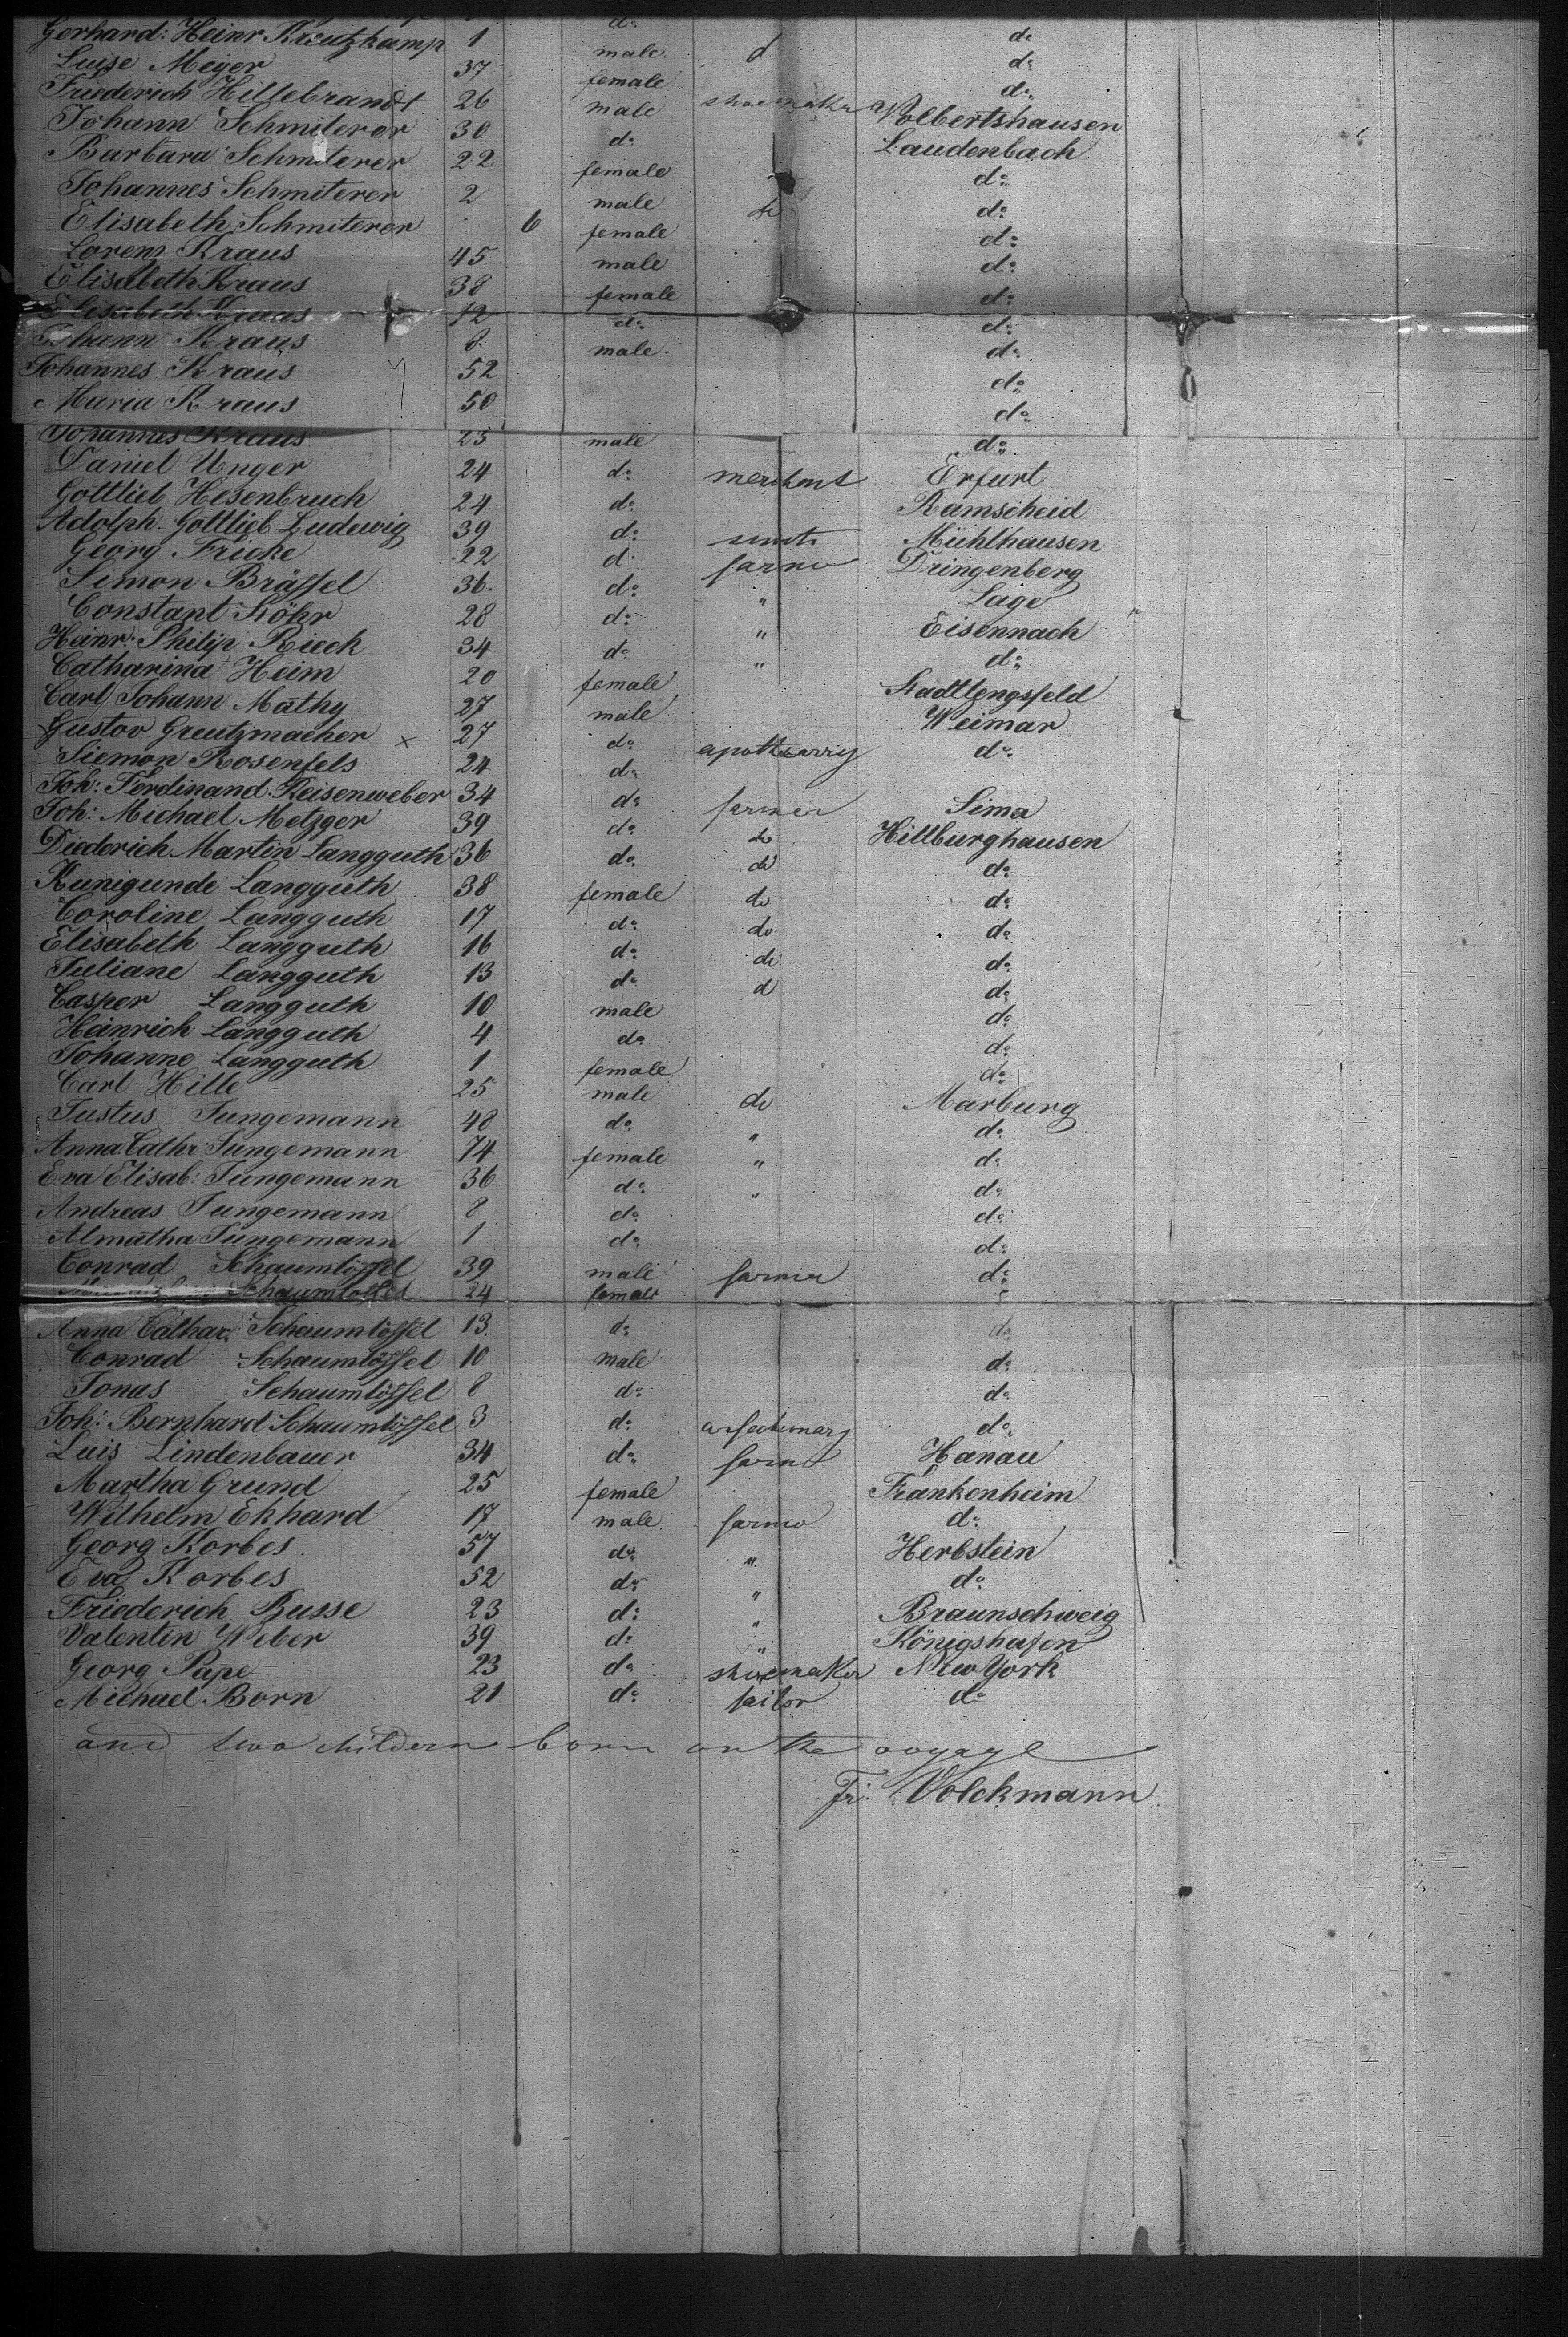 Gerhard: Heinr Kreutzkamp 1 male d do
Luise Meyer 37 female do
Friederich Hillebrandt 26 male shoemaker Wolbertshausen
Johann Schmiterer 30 do Laudenbach
Barbara Schmiterer 22 female do
Johannes Schmiterer 2 male do do
Elisabeth Schmiterer 6 female do
Lorenz Kraus 45 male do
Elisabeth Kraus 38 female do
Elisabeth Kraus 12 do do
Johann Kraus 8 male do
Johannes Kraus 52 do
Maria Kraus 50 do
Johannes Kraus 23 male do
Daniel Unger 24 do merchant Erfurt
Gottlieb Hesenbruch 24 do Ramscheid
Adolph Gottlieb Ludewig 39 do Mühlhausen
Georg Fricke 22 do farmer Dringenberg
Simon Bräffel 36 do " Lage
Constant Köhr 28 do " Eisennach
Heinr: Philip Rieck 34 do " do
Catharina Heim 20 female Stadtlengsfeld
Carl Johann Mathy 27 male Weimar
Gustav Greutzmacher x 27 do apothecarry do
Siemon Rosenfels 24 do
Joh: Ferdinand Reisenweber 34 do farmer Sima
Joh: Michael Metzger 39 do do Hillburghausen
Diederich Martin Langguth 36 do do do
Kunigunde Langguth 38 female do do
Caroline Langguth 17 do do do
Elisabeth Langguth 16 do do do
Juliane Langguth 13 do d do
Casper Langguth 10 male do
Heinrich Langguth 4 do do
Johanne Langguth 1 female do
Carl Hille 25 male do Marburg
Justus Jungemann 48 do " do
Anna Cathr Jungemann 74 female " do
Eva Elisab: Jungemann 36 do " do
Andreas Jungemann 8 do do
Almatha Jungemann 1 do do
Conrad Schaumlöffel 39 male farmer do
Schaumlöffel 24 female
Anna Cathar: Schaumlöffel 13 do do
Conrad Schaumlöffel 10 male do
Jonas Schaumlöffel 8 do do
Joh: Bernhard Schaumlöffel 3 do do
Luis Lindenbauer 34 do Hanau
Martha Grund 25 female Frankenheim
Wilhelm Ekhard 17 male farmer do
Georg Korbes 57 do " Herbstein
Eva Korbes 52 do " do
Friederich Busse 23 do " Braunschweig
Valentin Weber 39 do " Königshafen
Georg Pape 23 do shoemaker New York
Michael Born 21 do tailor do
and two childern born on the voyage
Fr: Volckmann